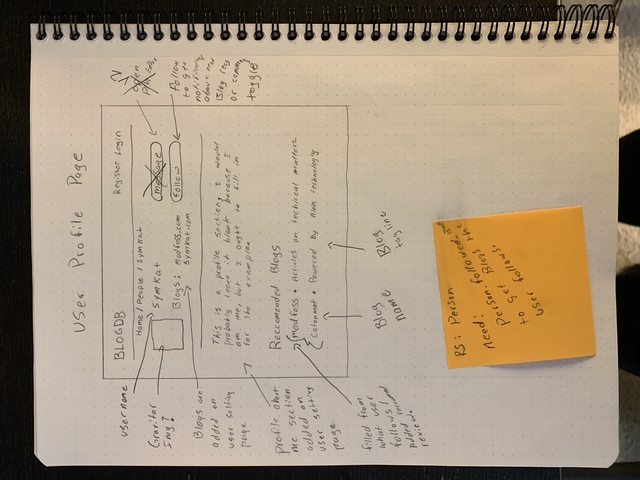 User Profile Page
BLOGDB
Register Login
Home / People / Symkat
Symkat
message
follow
Blogs: modfoss.com
symkat.com
This is a profile section, I would
probably leave it blank because I
am me, but I ought to fill in
for the example.
Reccomended Blogs
modfoss • Articles on technical matters
Powered by technology
username
Gravitar
Img?
Blogs are
added on
user setting
page
Profile about
me section
added on
user setting
page
filled from
what user
follows /
added
review.
Blog
name
Blog line
tag
open
follow
to get
notifings
about new
Blog
or
toggle
PS: Person followed
need: follows
Person: Blogs
get follows
to
user